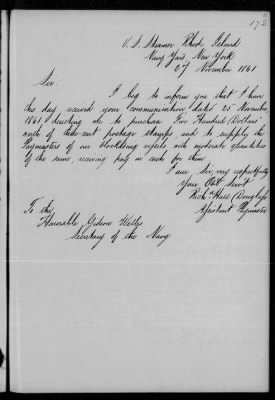 172
U. S. Steamer Rhode Island
Navy Yard, New York
27 November 1861
Sir.
I beg to inform you that I have
this day received your communication dated 25 November
1861, directing me to purchase Five Hundred Dollars'
worth of three cent postage stamps and to supply the
Paymasters of our blockading vessels with moderate quantities
of the same, receiving pay in cash for them.
I am, Sir, very respectfully
Your Obt Servt
Richd Hall Douglass
Assistant Paymaster
To the
Honorable Gideon Welles
Secretary of the Navy